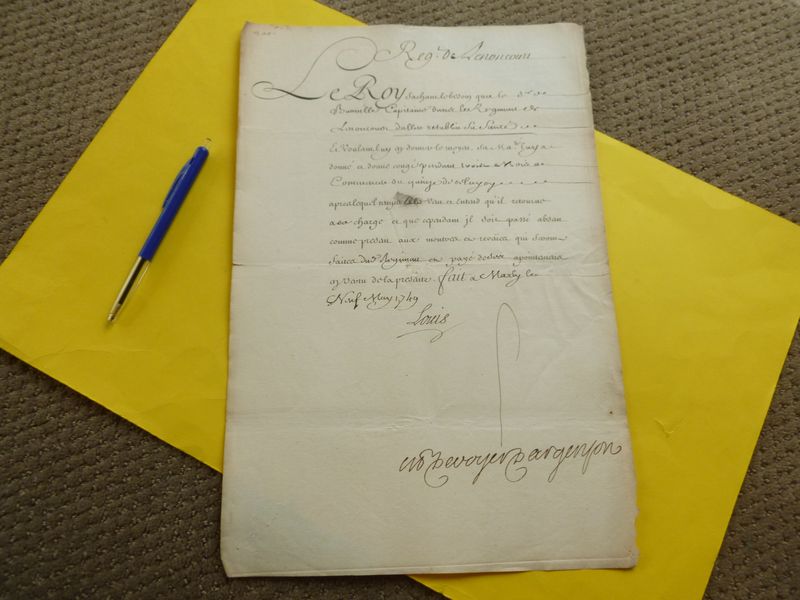 Reg.t de Lenoncourt
Le Roy sachant le besoin qua le S.r de
Capitaine dans le Regiment de
Lenoncourt daller retablir sa Santé
Et Voulant luy en donner le moyen, Sa Ma.té luy a
donné et donne congé pendant trois mois a
Commancer du quinze de
apres lequel temps elle veut et Entend qu'il retourne
a sa charge et que cependant jl soit passé absent
comme present aux montres et reveües qui seront
faites dud. Regiment et payé de ses apointemens
en vertu de la presente. fait a Marly le
Neuf May 1749
Louis
de voyer Dargenson